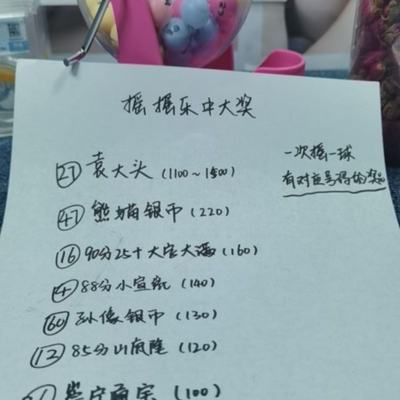 摇摇乐中大奖
一次摇一球
有对应号码的奖品
27 袁大头 (1100~1500)
47 熊猫银币 (220)
16 90分25十大宝大满 (160)
4 88分小宣统 (140)
60 孙像银币 (130)
12 85分山底隆 (120)
(100)